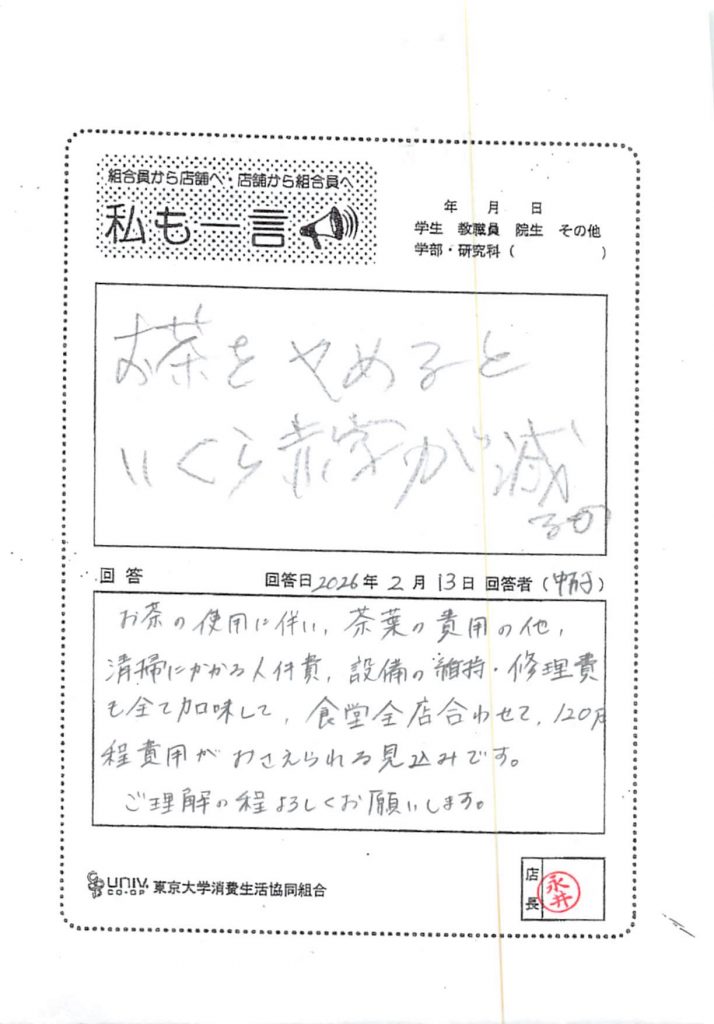 組合員から店舗へ・店舗から組合員へ
私も一言
年 月 日
学生 教職員 院生 その他
学部・研究科( )
お茶をやめると
いくら赤字が減
るの
回答 回答日2026年2月13日 回答者( )
お茶の使用に伴い、茶葉の費用の他、
清掃にかかる人件費、設備の維持・修理費
も全て加味して、食堂全店合わせて、120万
程費用がおさえられる見込みです。
ご理解の程よろしくお願いします。
UNIV. CO-OP 東京大学消費生活協同組合
店長 永井